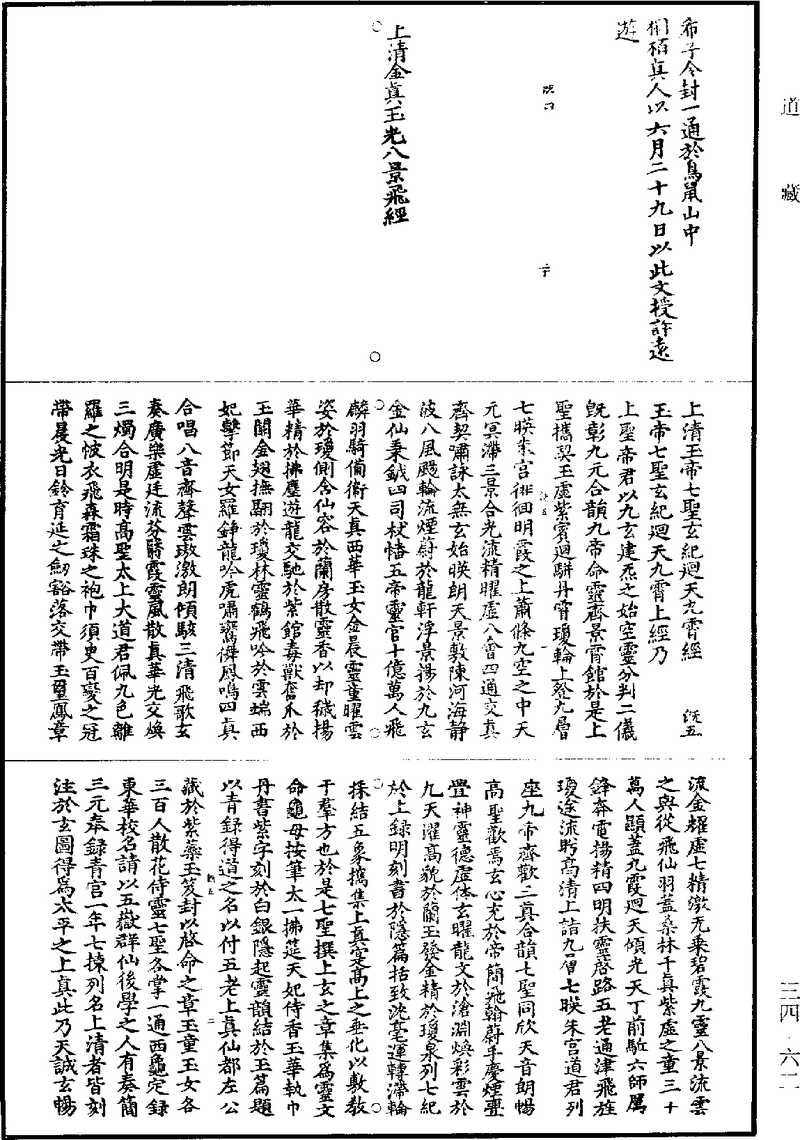 道藏
希子今封一通於鳥鼠山中
桐栢真人以六月二十九日以此文授許遠
遊
上清金真玉光八景飛經
上清玉帝七聖玄紀迴天九霄經
既五
玉帝七聖玄紀迴天九霄上經乃
上聖帝君以九玄建炁之始空靈分判二儀
既彰九元合韻九帝命靈齊景霄館於是上
聖攜契玉虛紫賓迴駢丹霄瓊輪上登九層
七暎朱宮徘徊明霞之上蕭條九空之中天
元冥滯三景合光流精曜虛八會四通交真
齊契嘯詠太無玄始暎朗天景敷陳河海静
波八風颺輪流煙蔚於龍軒浮景揚於九玄
金仙秉鉞四司杖幡五帝靈官十億萬人飛
麟羽騎備衛天真西華玉女金晨靈童曜雲
姿於瓊側含仙容於蘭房散靈香以却穢揚
華精於拂塵遊龍交馳於紫館毒獸奮爪於
玉闕金翅撫翮於瓊林靈鶴飛吟於雲端西
妃擊節天女羅錚龍吟虎嘯鸞儛鳳鳴四真
合唱八音齊聲雲璈激朗傾駭三清飛歌玄
奏廣樂虛廷流芬蔚霞靈風散真華光交煥
三燭合明是時高聖太上大道君佩九色離
羅之帔衣飛森霜珠之袍巾須臾百變之冠
帶晨光日鈴育延之劒豁落交帶玉璽鳳章
流金耀虛七精激无乘碧霞九靈八景流雲
之輿從飛仙羽蓋桑林千真紫虛之童三十
萬人顯蓋九霞迴天傾光天丁前驅六師厲
鋒奔電揚精四明扶靈啓路五老通津飛旌
瓊途流眄高清上詣九層七暎朱宮道君列
座九帝齊歡二真合韻七聖同欣天音朗暢
高聖歡焉玄心尤於帝簡飛翰蔚乎慶煙疊
疊神靈德虛体玄曜龍文於滄淵煥彩雲於
九天濯高貌於蘭玉發金精於瓊泉列七紀
於上録明刻書於隱篇括致洸毫運轉滯輪
採結五象攜集上真寔高上之垂化以數敎
于羣方也於是七聖撰上玄之章集爲靈文
命龜母按筆太一拂筵天妃侍香玉華執巾
丹書紫字刻於白銀隱起靈韻結於玉篇題
以青録得道之名以付五老上真仙都左公
藏於紫蘂玉笈封以啓命之章玉童玉女各
三百人散花侍靈七聖各掌一通西龜定録
東華校名請以五嶽群仙後學之人有奏簡
三元奉録青宮一年七揀列名上清者皆刻
注於玄圖得爲太平之上真此乃天誠玄暢
三四·六二